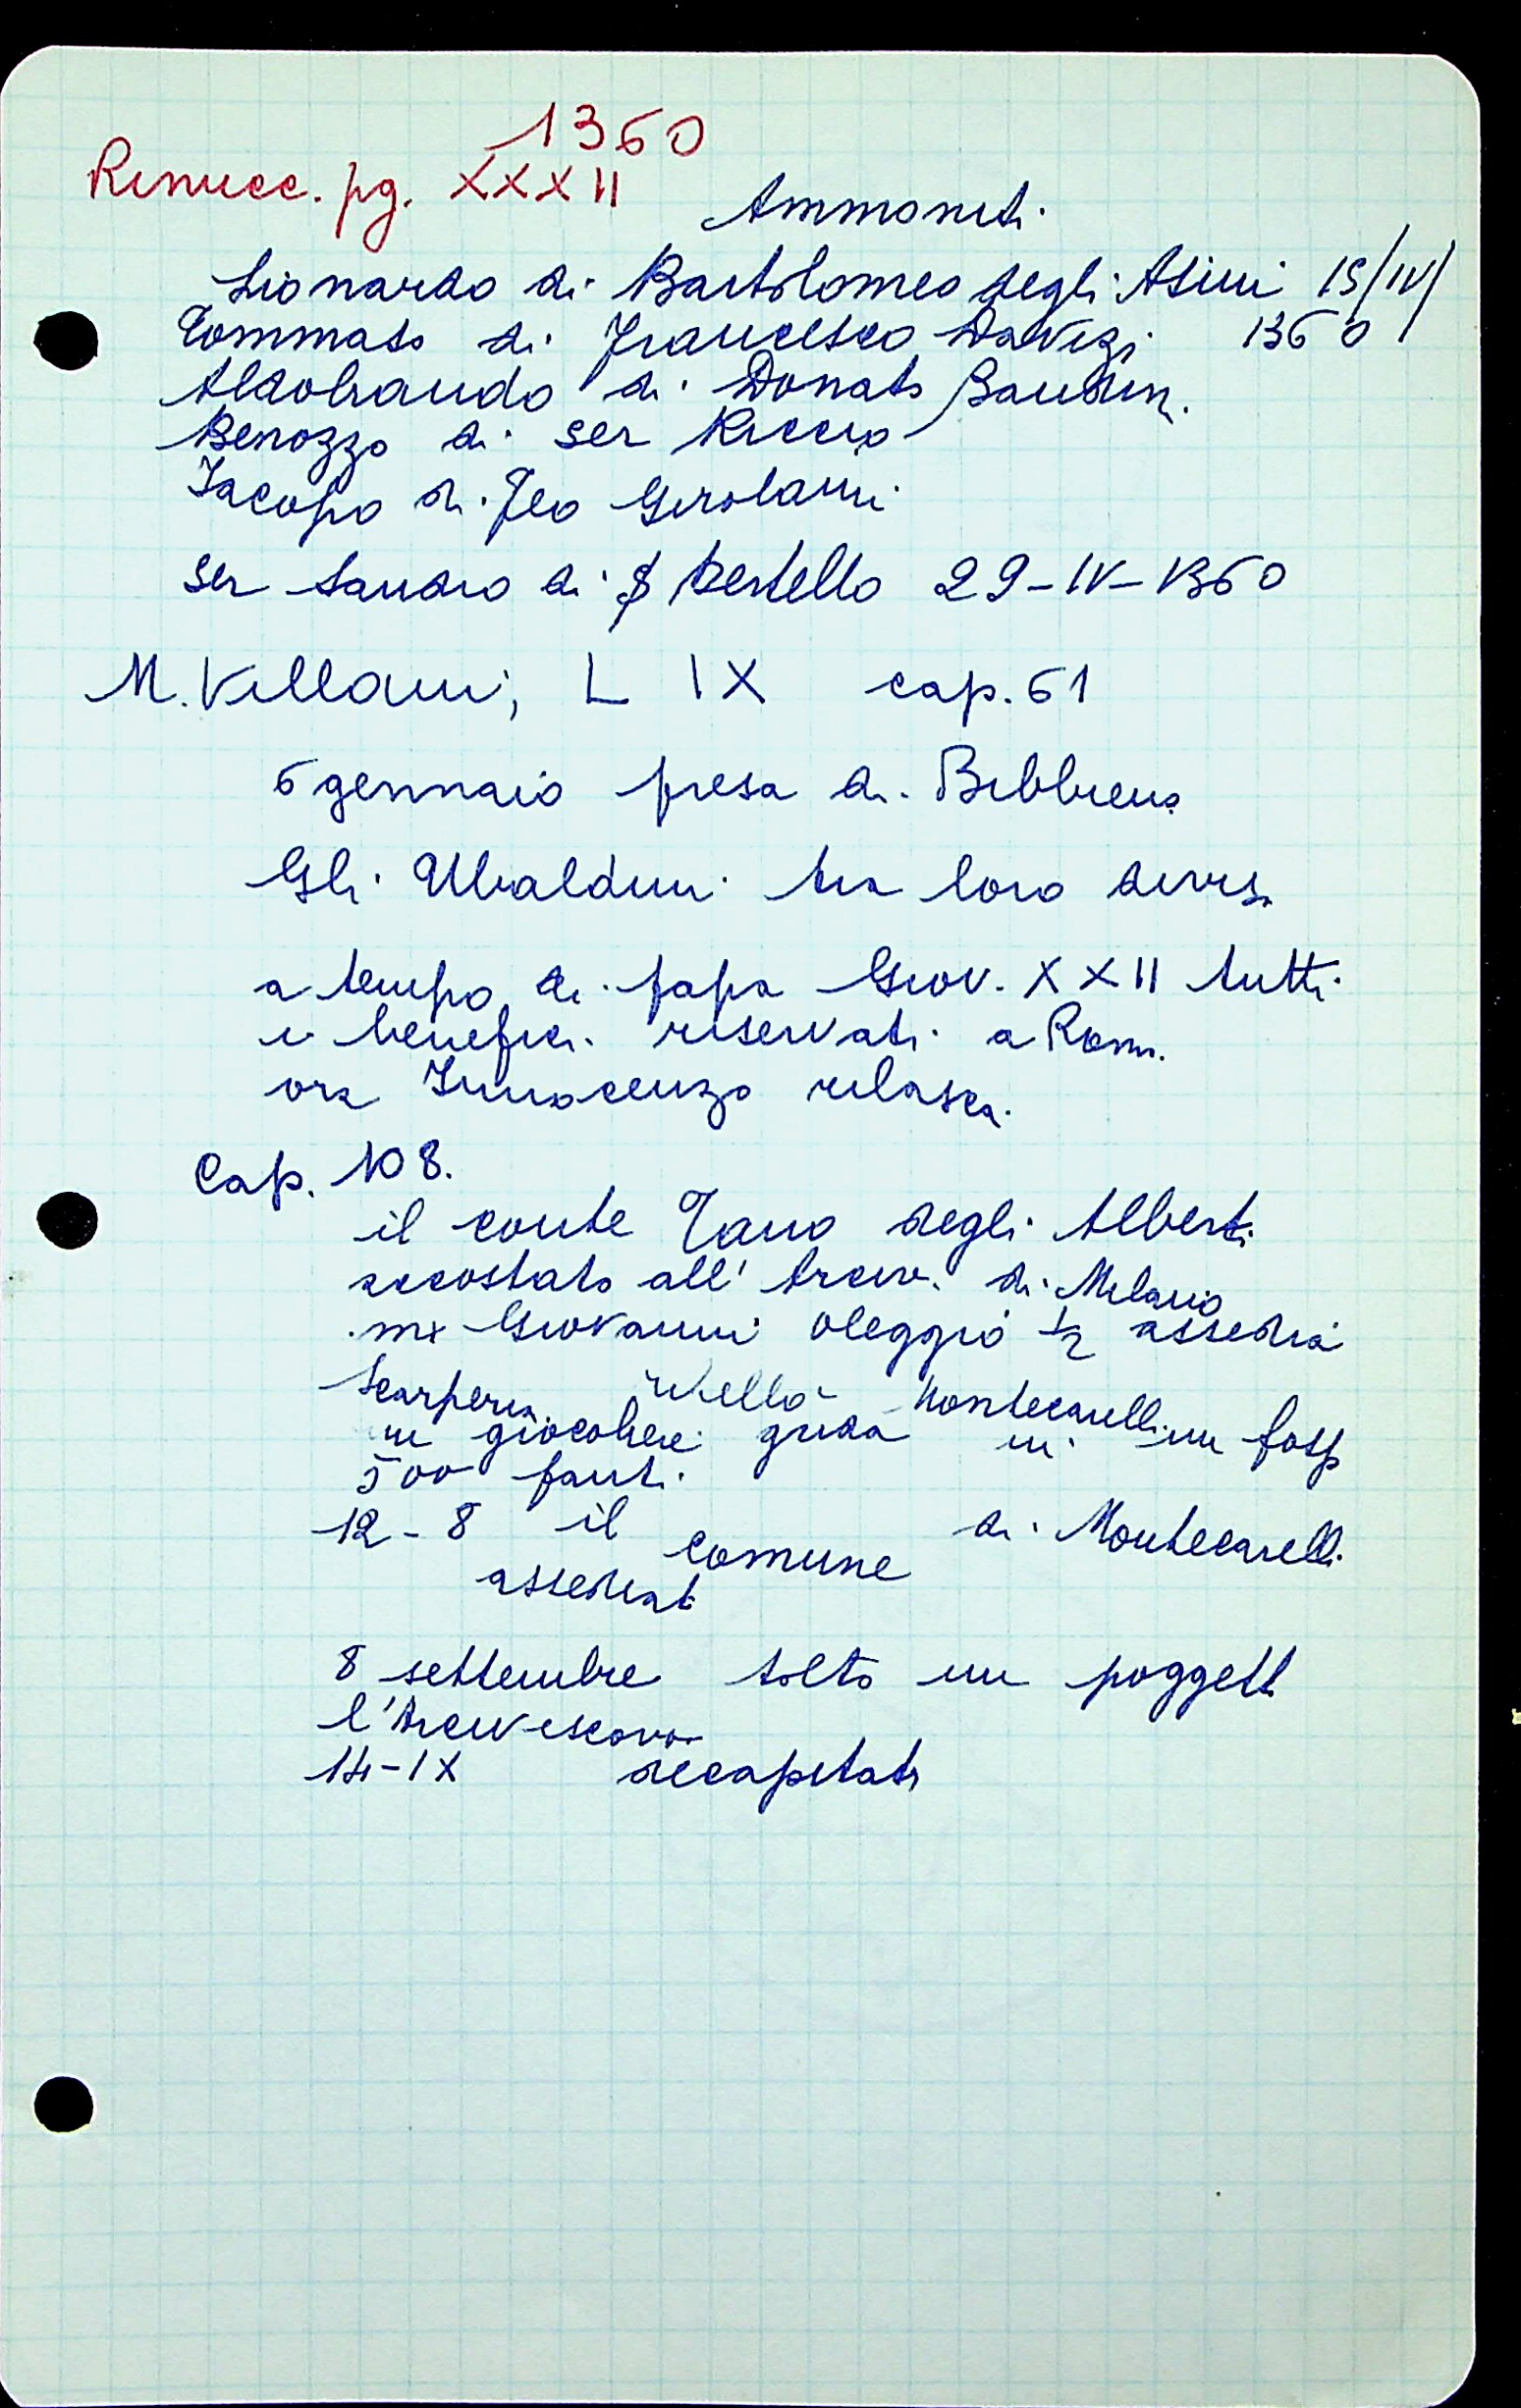 1360
Rinucc. pg. XXXII
Ammoniti
Lionardo di Bartolomeo degli Asini 15/IV/
Tommaso di Francesco Davizi 1360
Aldobrando di Donato Bandini
Benozzo di ser Riccio
Iacopo di Geo Girolami
ser Sandro di Bertello 29-IV-1360
M. Villani, L IX cap. 61
6 gennaio presa di Bibbiena
Gli Ubaldini tra loro divisi
a tempo di papa Giov. XXII tutti
i benefici riservati a Roma
ora Innocenzo rilascia
Cap. 108.
il conte Tano degli Alberti
accostato all' Arciv. di Milano
mx Giovanni Oleggio assedia
Scarperia ribellò Montecarelli
un giocoliere grida in un fosso
500 fanti
12-8 il comune di Montecarelli
assediat
8 settembre tolto un poggett
l'Arcivescovo
14-IX decapitato